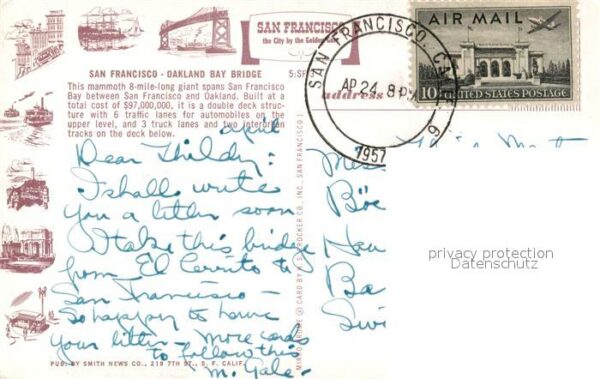 SAN FRANCISCO
the City by the Golden Gate
SAN FRANCISCO - OAKLAND BAY BRIDGE
5:SF
This mammoth 8-mile-long giant spans San Francisco
Bay between San Francisco and Oakland. Built at a
total cost of $97,000,000, it is a double deck struc-
ture with 6 traffic lanes for automobiles on the
upper level, and 3 truck lanes and two interurban
tracks on the deck below.
April
Dear Thildy:
I shall write
you a letter soon
I take this bridge
from El Cerrito to
San Francisco —
So happy to have
your letter — More cards
to follow this
M. Gale —
PUB. BY SMITH NEWS CO., 219 7TH ST., S. F. CALIF.
CARD BY H. S. CROCKER CO., INC., SAN FRANCISCO 1
address
SAN FRANCISCO, CALIF.
AP 24 8 PM
1957
AIR MAIL
10¢ United States Postage
Ba
privacy protection
Datenschutz